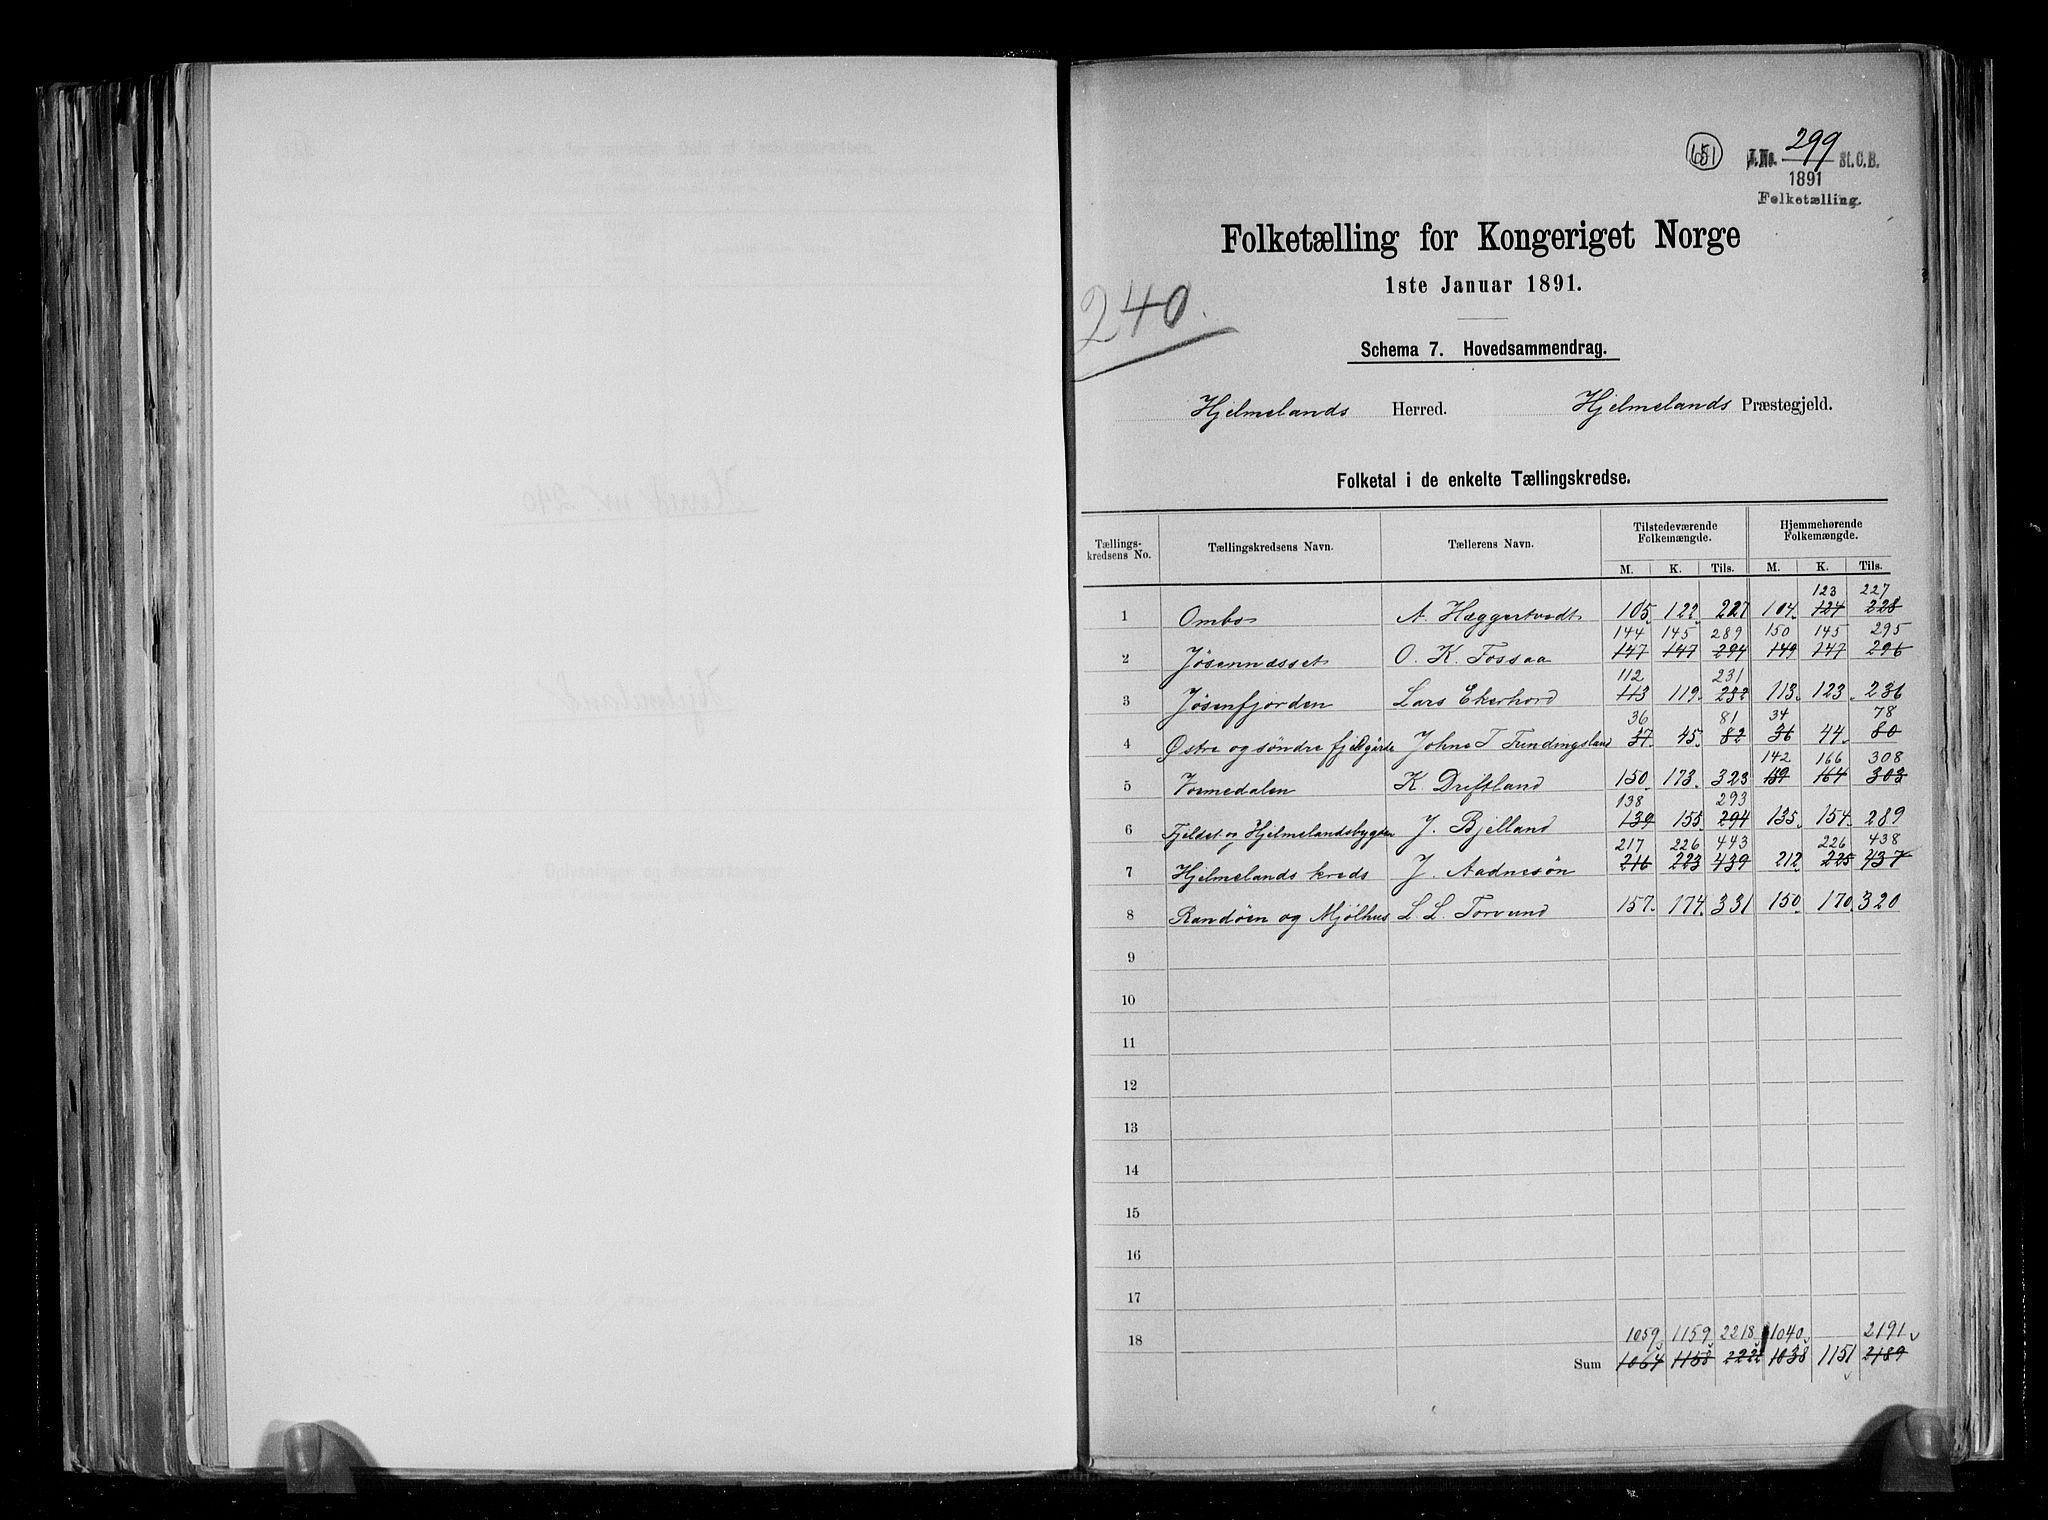 651
J. No. 299 St. C. B.
1891
Folketælling.
Folketælling for Kongeriget Norge
1ste Januar 1891.
240.
Schema 7. Hovedsammendrag.
Hjelmelands Herred. Hjelmelands Præstegjeld.
Folketal i de enkelte Tællingskredse.
Tællings-kredsens No. Tællingskredsens Navn. Tællerens Navn. Tilstedeværende Folkemængde. Hjemmehørende Folkemængde.
M. K. Tils. M. K. Tils.
123 227
1 Ombo A. Hæggertvedt 105 122 227 104 124 228
144 145 289 150 145 295
2 Jøsennæsset O. K. Fossaa 147 147 294 149 147 296
112 231
3 Jøsenfjorden Lars Ekerhord 113 119 232 113 123 236
36 81 34 78
4 Østre og søndre fjeldgårde Johne T Fundingsland 37 45 82 36 44 80
142 166 308
5 Vormedalen K. Driftland 150 173 323 139 164 303
138 293
6 Fjeldet og Hjelmelandsbygden J. Bjelland 139 155 294 135 154 289
217 226 443 226 438
7 Hjelmelands kreds J. Aadnesøn 216 223 439 212 225 437
8 Randøen og Mjølhus L. L. Torvund 157 174 331 150 170 320
9
10
11
12
13
14
15
16
17
18 1059 1159 2218 1040 2191
Sum 1064 1158 2222 1038 1151 2189